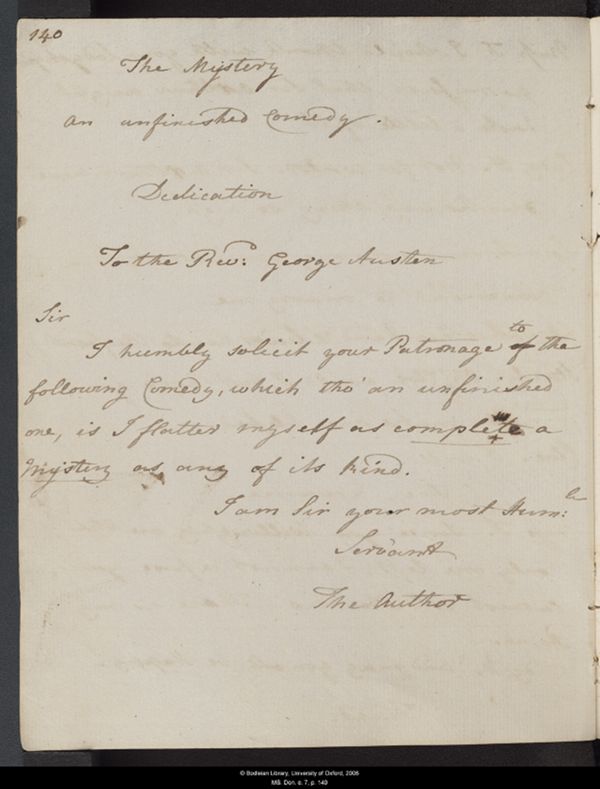 140
The Mystery
an unfinished Comedy.
Dedication
To the Revd: George Austen
Sir
I humbly solicit your Patronage to of the
following Comedy, which tho' an unfinished
one, is I flatter myself as complete a
Mystery as any of its kind.
I am Sir your most Humle:
Servant
The Author
© Bodleian Library, University of Oxford, 2006
MS. Don. e. 7, p. 140